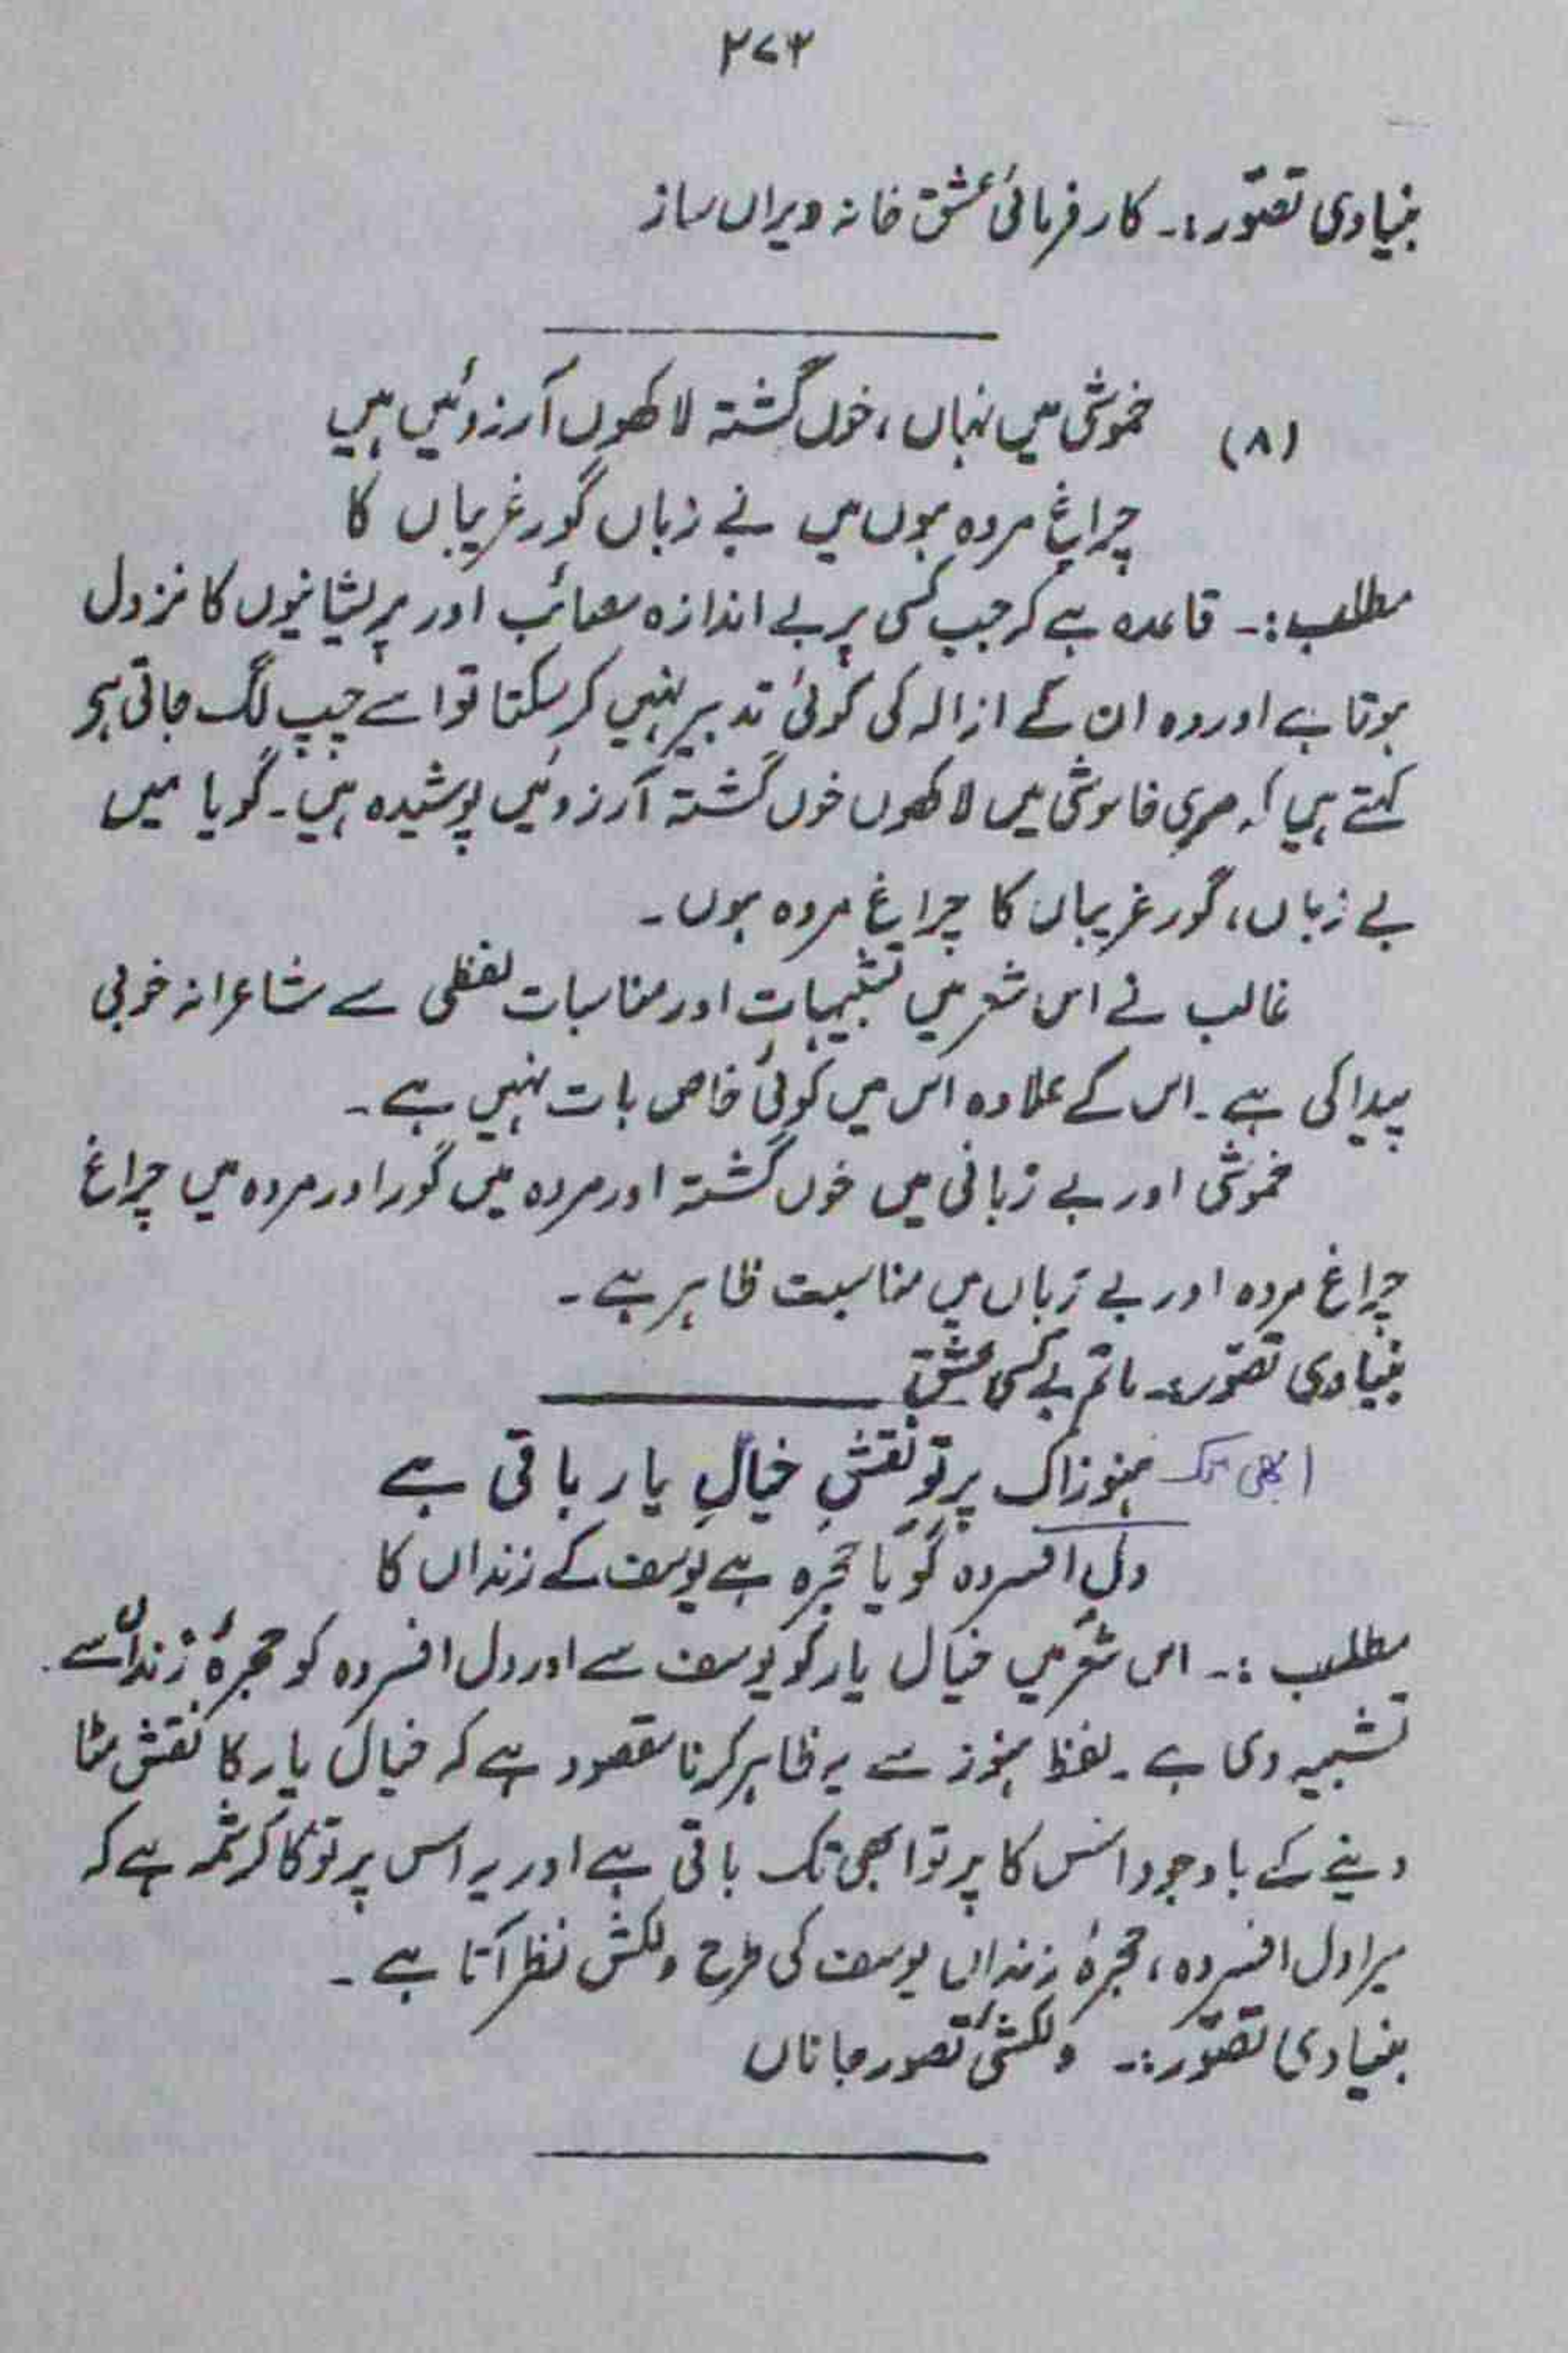 ۲۷۳
بنیادی تصوّر:۔ کار فرمائیٔ عشق خانہ ویراں ساز
(۸) خموشی میں نہاں، خوں گشتہ لاکھوں آرزوئیں ہیں
چراغ مردہ ہوں میں بے زباں گور غریباں کا
مطلب:۔ قاعدہ ہے کہ جب کسی پر بے اندازہ مصائب اور پریشانیوں کا نزول
ہوتا ہے اور وہ ان کے ازالہ کی کوئی تدبیر نہیں کر سکتا تو اسے چپ لگ جاتی ہے
کہتے ہیں کہ میری خاموشی میں لاکھوں خوں گشتہ آرزوئیں پوشیدہ ہیں۔ گویا میں
بے زباں، گور غریباں کا چراغ مردہ ہوں۔
غالب نے اس شعر میں تشبیہات اور مناسبات لفظی سے شاعرانہ خوبی
پیدا کی ہے۔ اس کے علاوہ اس میں کوئی خاص بات نہیں ہے۔
خموشی اور بے زبانی میں خوں گشتہ اور مردہ میں گور اور مردہ میں چراغ
چراغ مردہ اور بے زباں میں مناسبت ظاہر ہے۔
بنیادی تصوّر:۔ ماتم بے کسی عشق
ابھی تک ہنوز اک پرتو نقشِ خیالِ یار باقی ہے
دلِ افسردہ گویا حجرہ ہے یوسف کے زنداں کا
مطلب:۔ اس شعر میں خیال یار کو یوسف سے اور دل افسردہ کو حجرۂ زنداں سے
تشبیہ دی ہے۔ لفظ ہنوز سے یہ ظاہر کرنا مقصود ہے کہ خیال یار کا نقش مٹا
دینے کے باوجود اس کا پرتو ابھی تک باقی ہے اور یہ اس پرتو کا کرشمہ ہے کہ
میرا دل افسردہ، حجرۂ زنداں یوسف کی طرح دلکش نظر آتا ہے۔
بنیادی تصوّر:۔ دلکشیٔ تصور جاناں